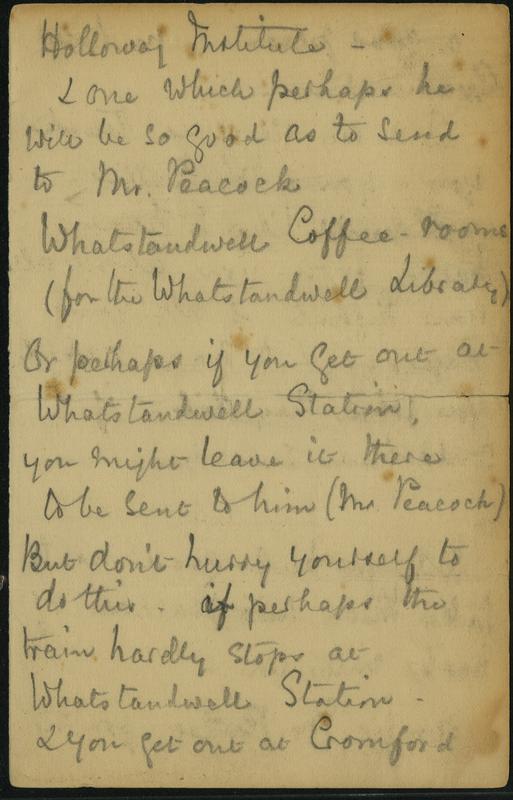 Holloway Institute -
& one which perhaps he
will be so good as to send
to Mr. Peacock
Whatstandwell Coffee-rooms
(for the Whatstandwell Library)
Or perhaps if you get out at
Whatstandwell Station,
you might leave it there
to be sent to him (Mr Peacock)
But don't hurry yourself to
do this. if perhaps the
train hardly stops at
Whatstandwell Station -
& you get out at Cromford